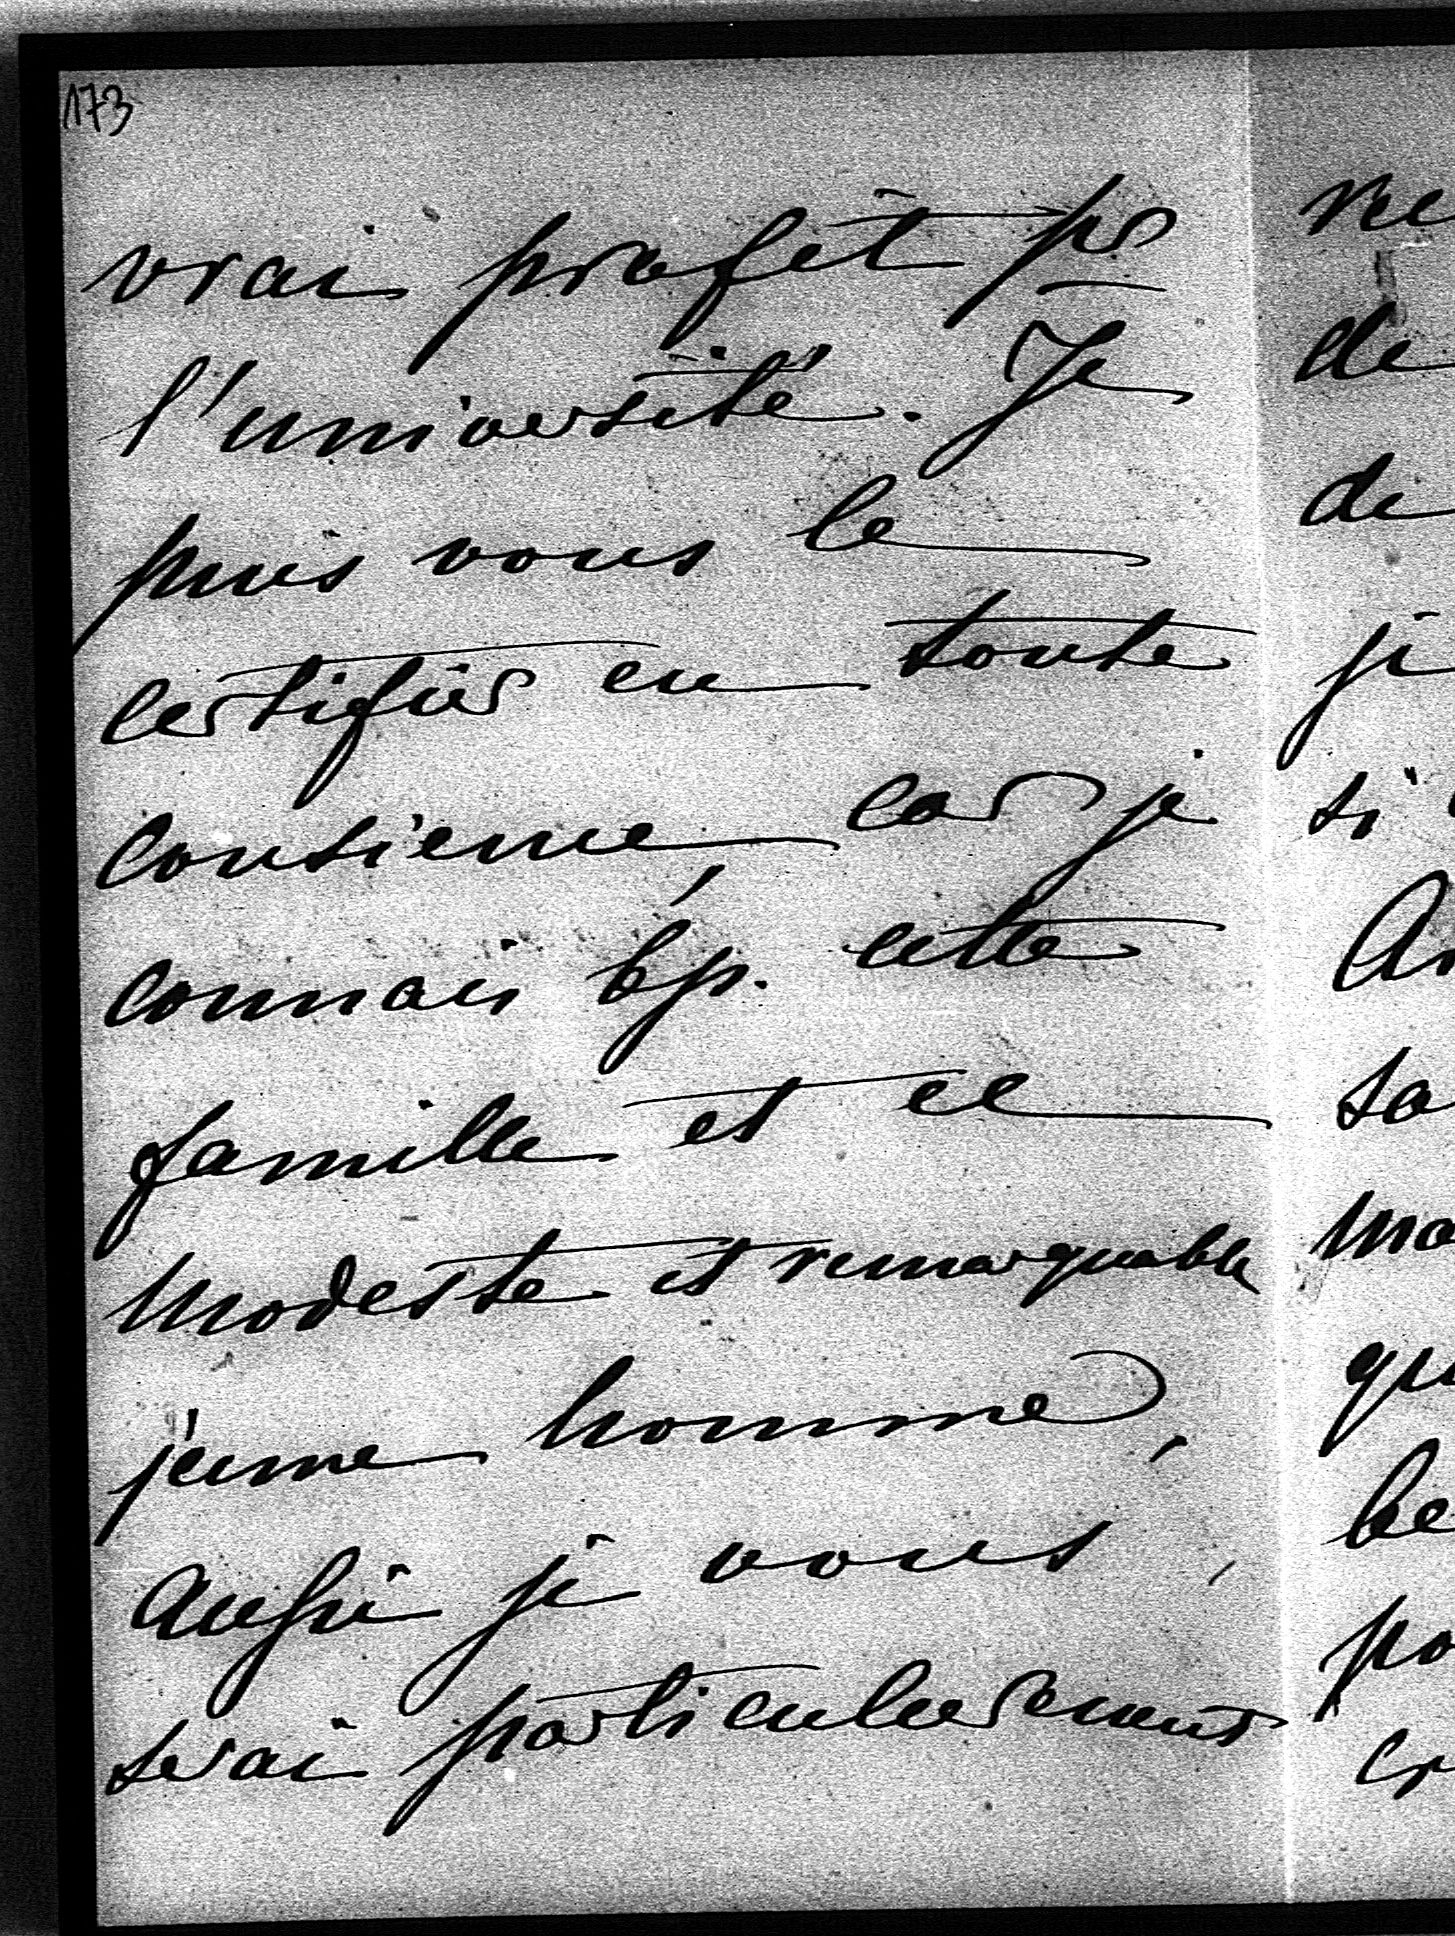 173
vrai profit pr
l'université. Je
puis vous le
certifier en toute
consience car je
connais bp. cette
famille et ce
modeste et remarquable
jeune homme,
Aussi je vous
serai particulièrement
ne
de
de
je
si
sa